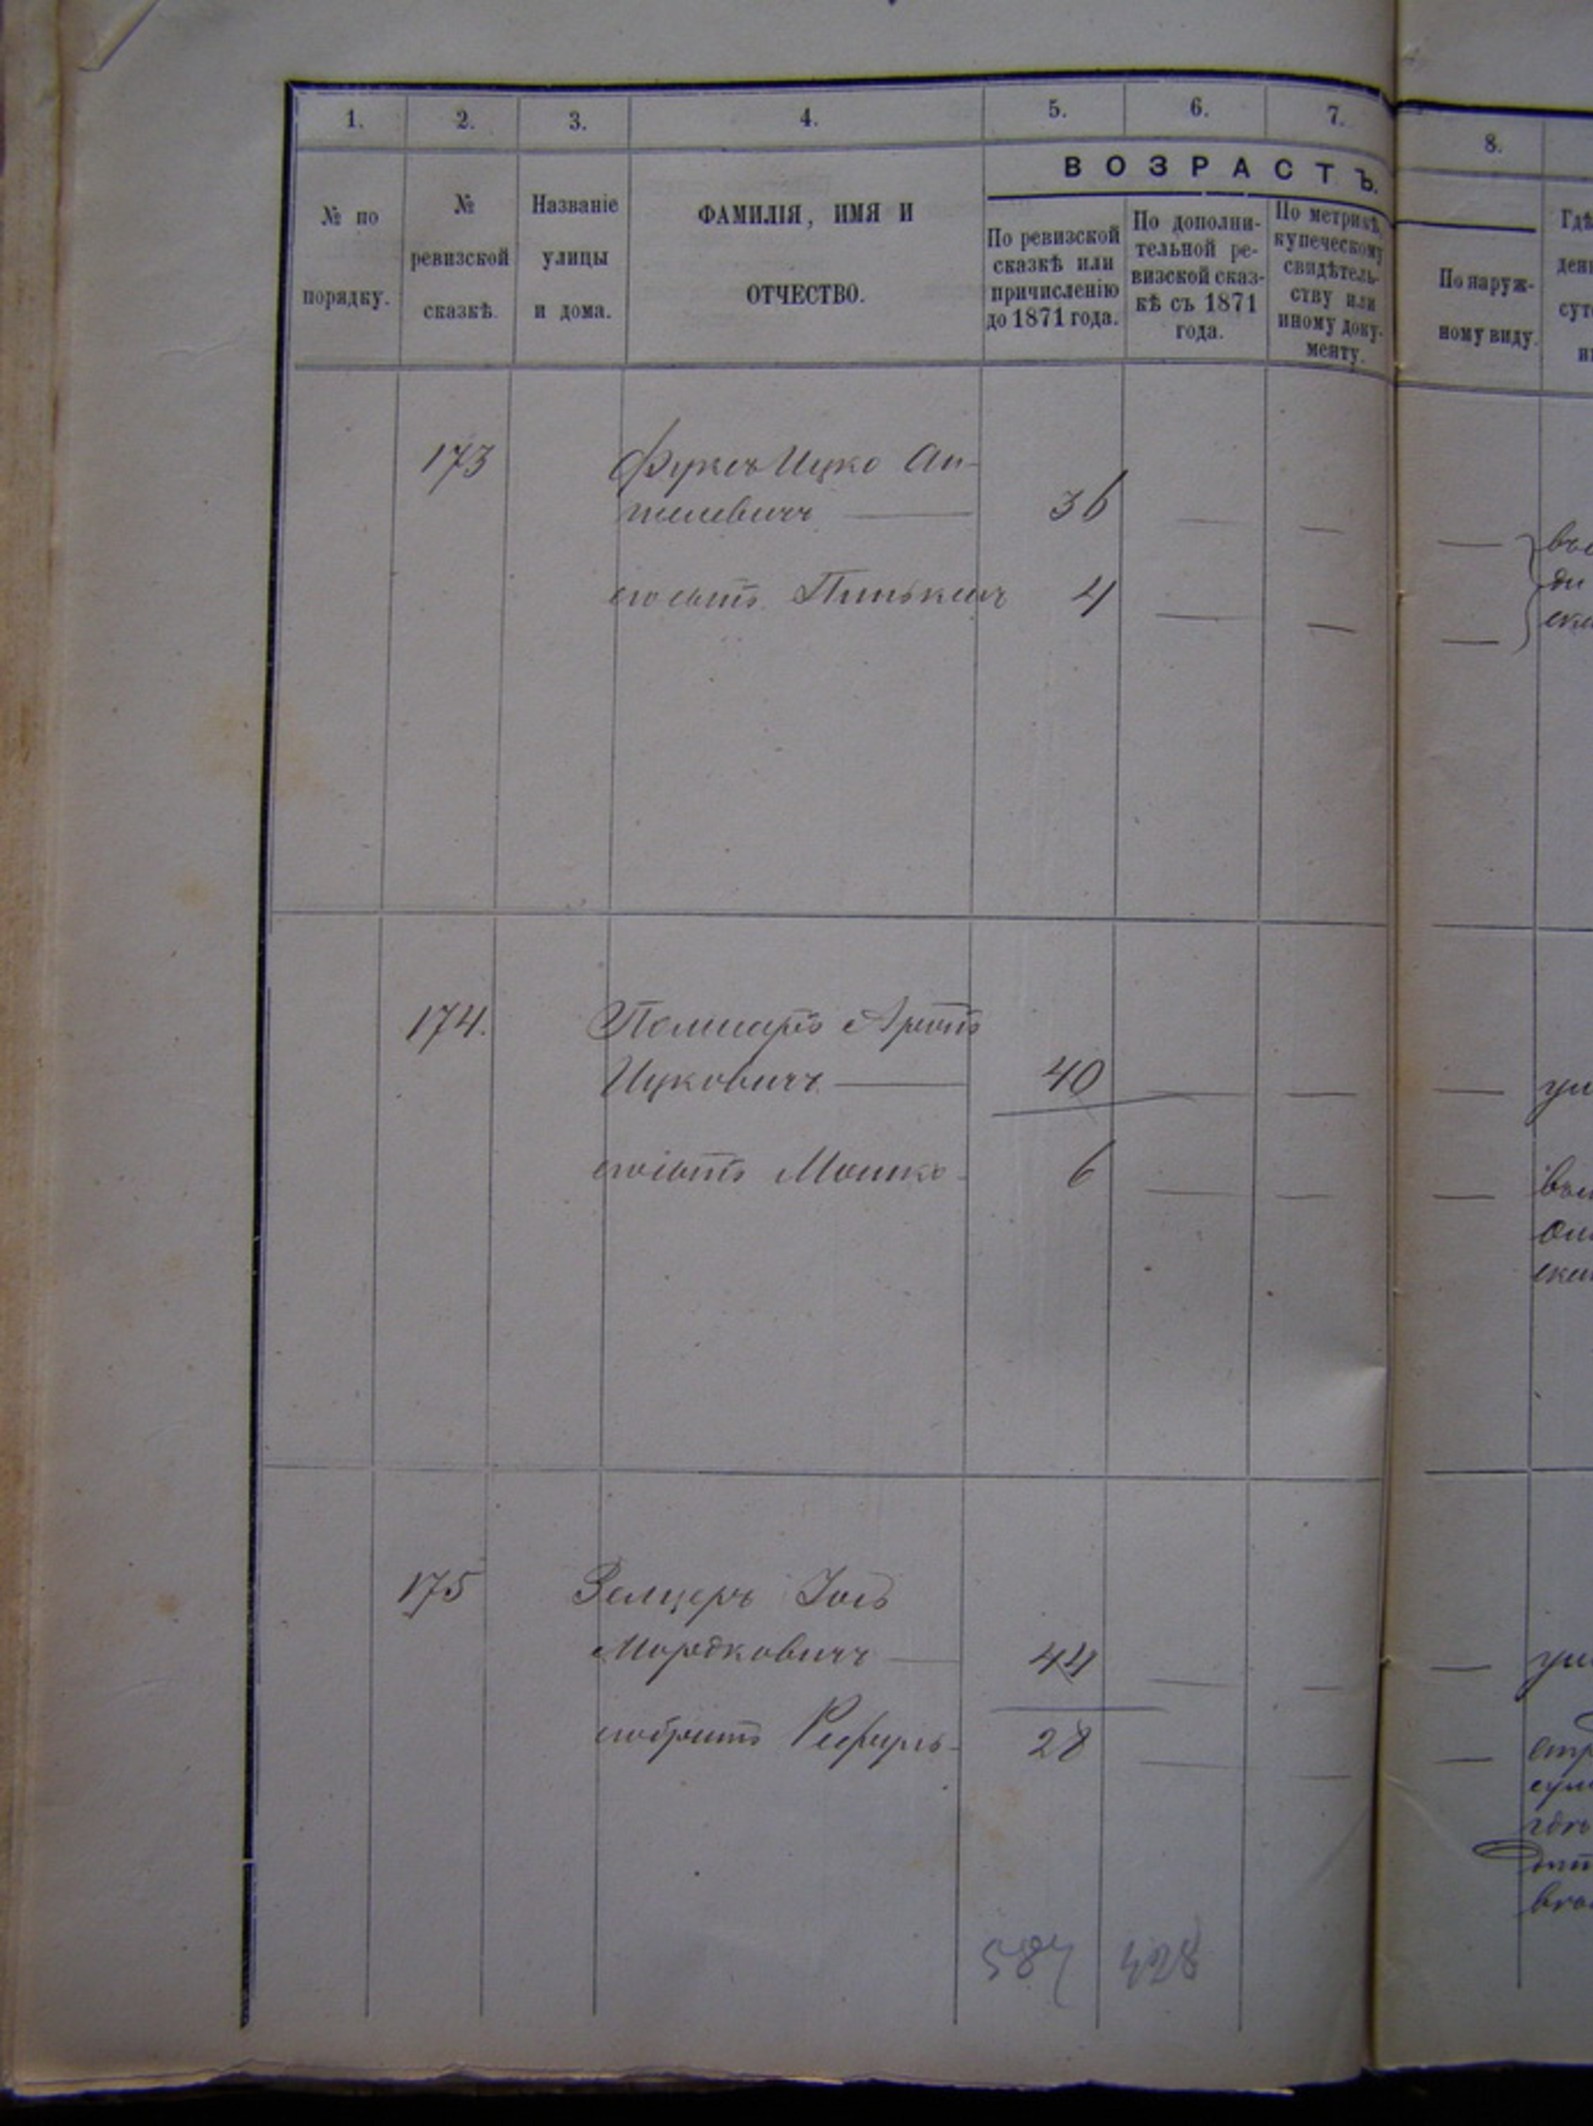 1. 2. 3. 4. 5. 6. 7. 8.
ВОЗРАСТЪ.
№ по
порядку.
№
ревизской
сказкѣ.
Названіе
улицы
и дома.
ФАМИЛІЯ, ИМЯ И
ОТЧЕСТВО.
По ревизской
сказкѣ или
причисленію
до 1871 года.
По дополни-
тельной ре-
визской сказ-
кѣ съ 1871
года.
По метрикѣ,
купеческому
свидѣтель-
ству или
иному доку-
менту.
По наруж-
ному виду.
173 Фуксъ Ицко Ан-
шелевичъ 36
его сынъ Пинькасъ 4
174. Аронъ
Ицковичъ 40
его сынъ Мошко 6
175 Зелцеръ Іось
Мордковичъ 44
его братъ 28
587 428